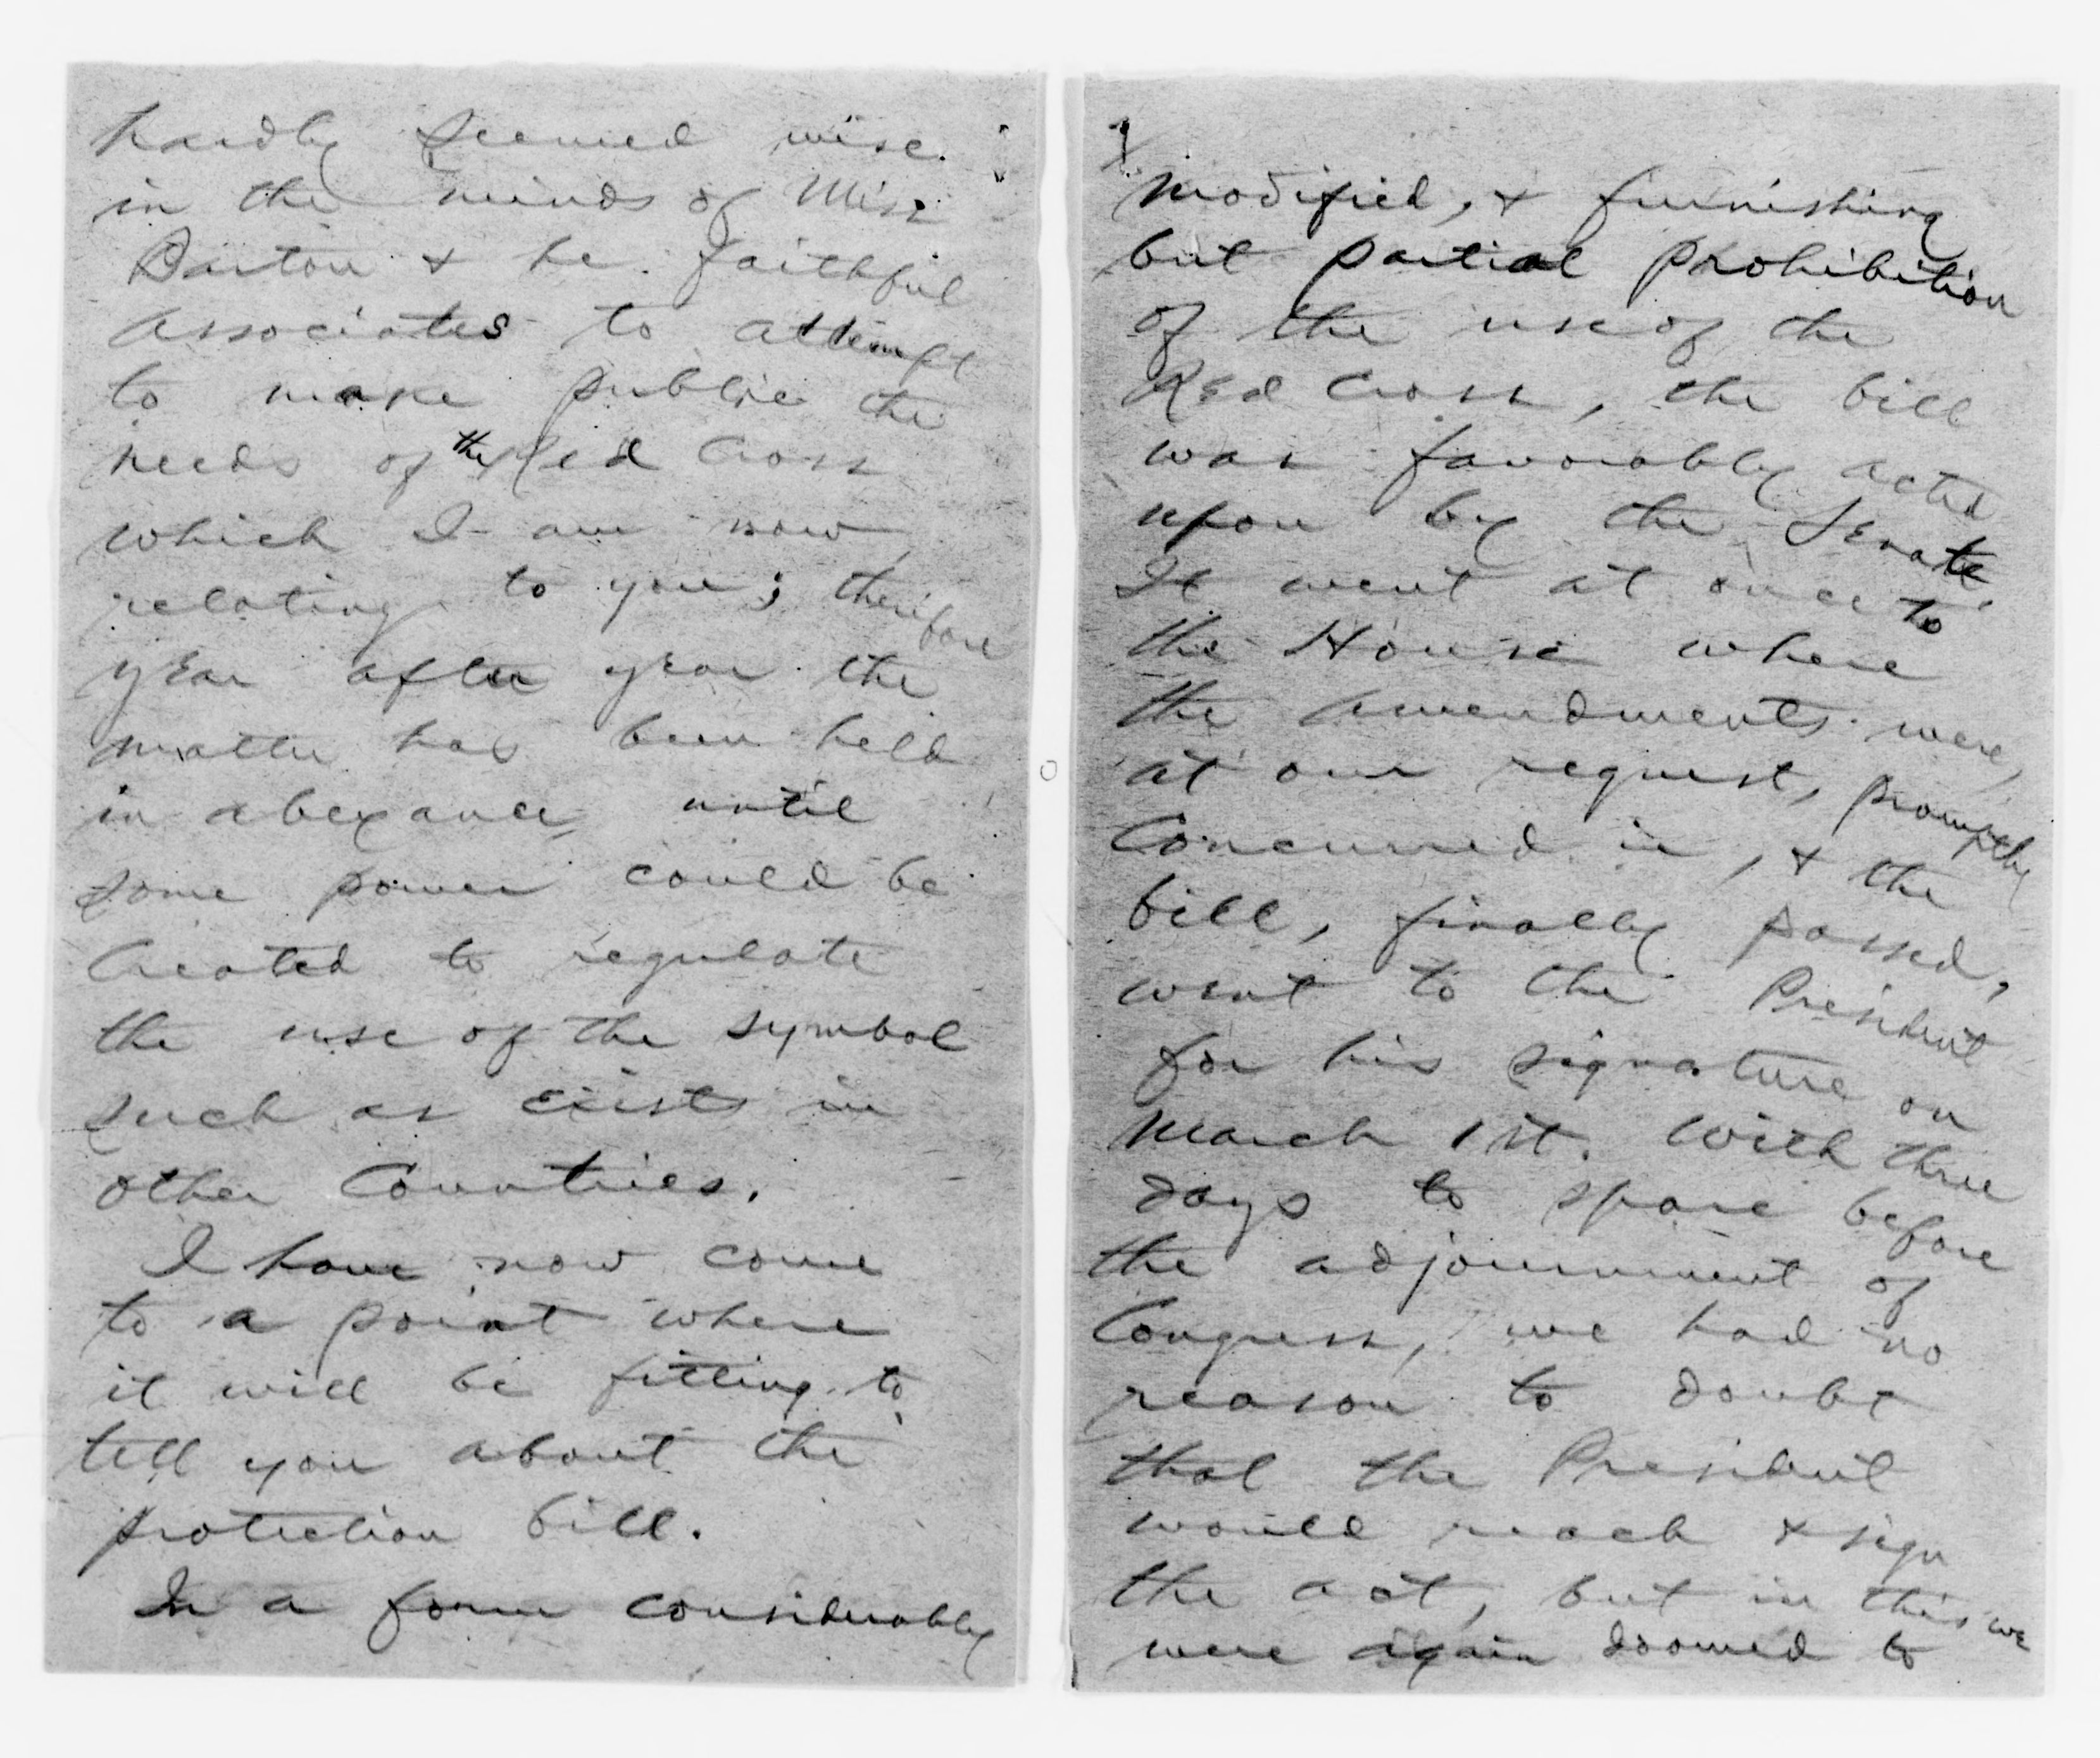 hardly seemed wise
in the minds of Miss
Barton & he. faithful
associates to attempt
to make public the
needs of the Red Cross
which I am now
relating to you; therefore
year after year the
matter has been held
in abeyance, until
some power could be
created to regulate
the use of the symbol
such as exists in
other Countries.
I have now come
to a point where
it will be fitting to
tell you about the
protection bill.
In a form considerably
modified, & furnishing
but partial prohibition
of the use of the
Red Cross, the bill
was favorably acted
upon by the Senate.
It went at once to
the House where
the amendments were,
at our request, promptly
Concurred in, & the
bill, finally passed,
went to the President
for his signature on
March 1st. With three
days to spare before
the adjournment of
Congress, we had no
reason to doubt
that the President
would reach & sign
the act, but in this we
were again doomed to